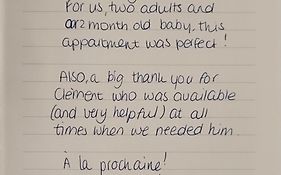 For us, two adults and
our 2 month old baby, this
appartment was perfect!
Also, a big thank you for
Clément who was available
(and very helpful) at all
times when we needed him.
À la prochaine!